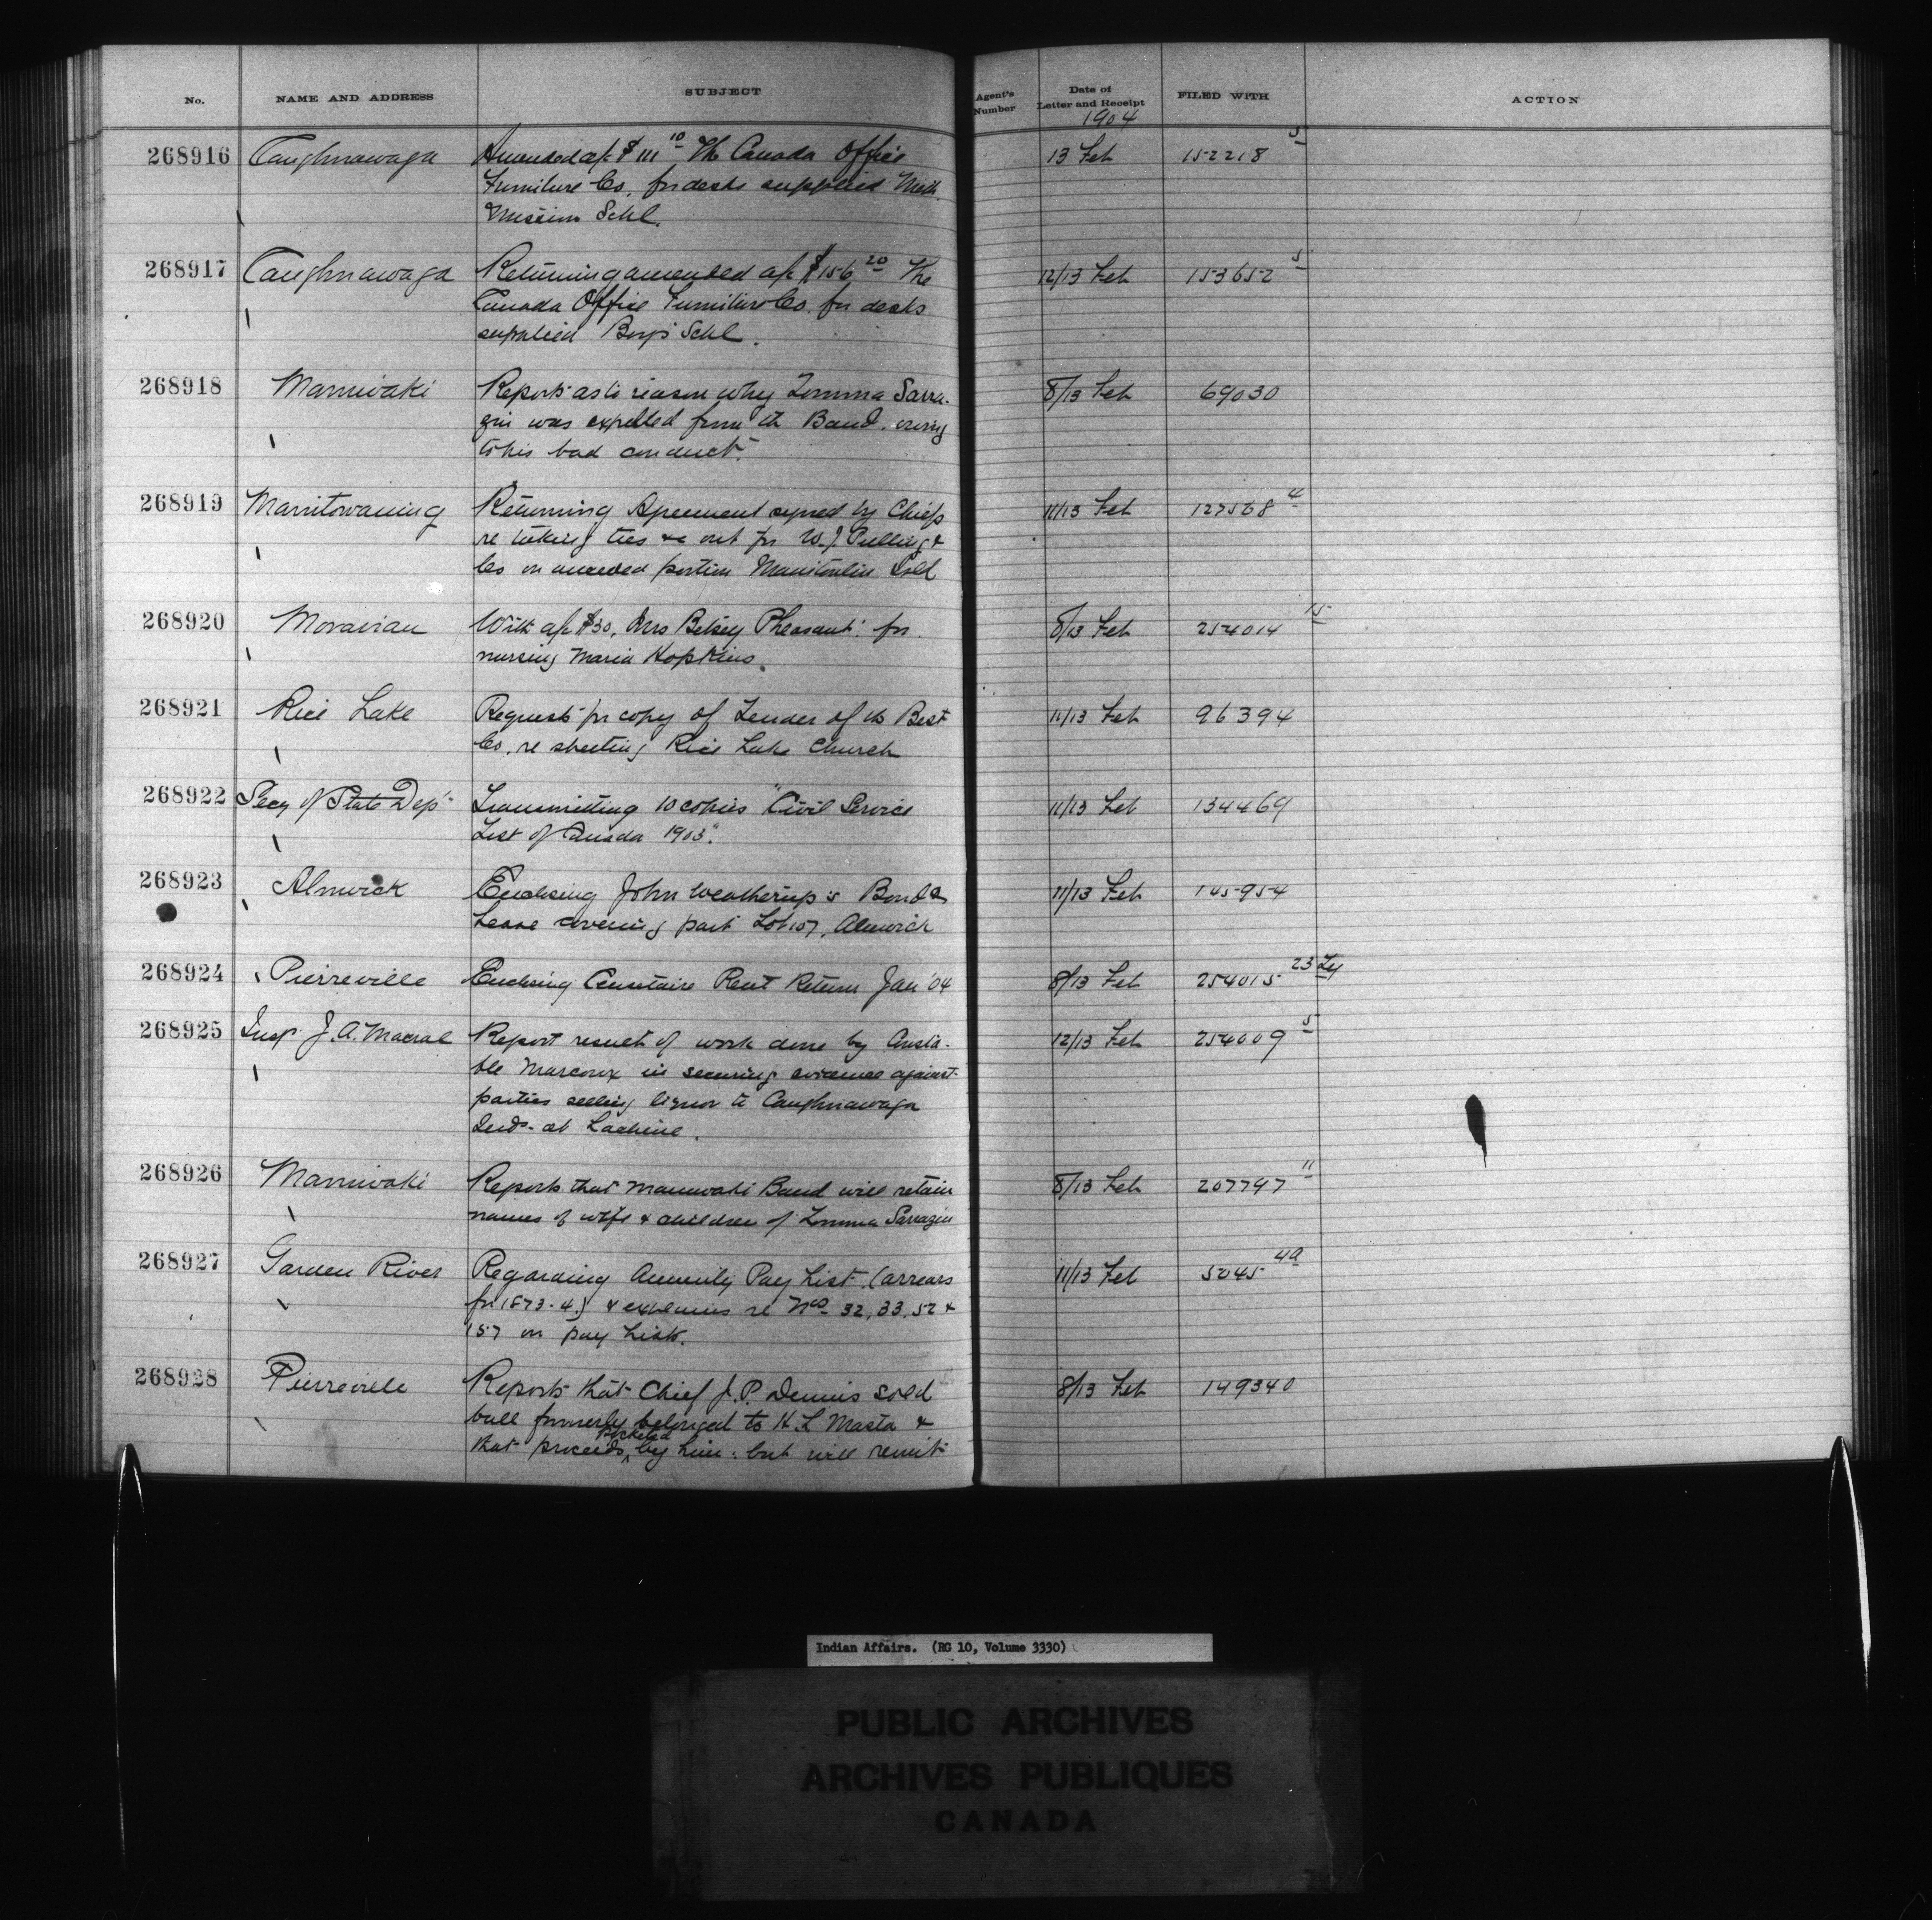 No. NAME AND ADDRESS SUBJECT Agent's Number Date of Letter and Receipt FILED WITH ACTION
1904
268916 Caughnawaga Amended a/c $111 10 The Canada Office 13 Feb 152218 5
Furniture Co. for desks supplied Meth.
Mission Schl.
268917 Caughnawaga Returning amended a/c $156 20 The 12/13 Feb 153652 5
Canada Office Furniture Co. for desks
supplied Boys' Schl.
268918 Maniwaki Reports as to reason why Tomma Sarra- 8/13 Feb 69030
gin was expelled from th Band, owing
to his bad conduct.
268919 Manitowaning Returning Agreement signed by Chiefs 11/13 Feb 127568 4
re taking ties &c out for W. J. Pulling &
Co on unceded portion Manitoulin Isld
268920 Moravian With a/c $30, Mrs Betsey Pheasant: for 8/13 Feb 254014 15
nursing Maria Hopkins.
268921 Rice Lake Requests for copy of Tender of th Best 11/13 Feb 96394
Co. re sheeting Rice Lake Church
268922 Secy of State Dept Transmitting 10 copies "Civil Service 11/13 Feb 134469
List of Canada 1903".
268923 Alnwick Enclosing John Weatherup's Bond & 11/13 Feb 145954
Lease covering part Lot 107, Alnwick
268924 Pierreville Enclosing Censitaire Rent Return Jan '04 8/13 Feb 254015 23
268925 Insp. J. A. Macrae Report result of work done by Consta- 12/13 Feb 254009 5
ble Marcoux in securing evidence against
parties selling liquor to Caughnawaga
Inds. at Lachine.
268926 Maniwaki Reports that Maniwaki Band will retain 8/13 Feb 207797 11
names of wife & children of Tomma Sarragin
268927 Garden River Regarding Annuity Pay List (arrears 11/13 Feb 5045 4a
for 1873-4) & explains re Nos 32, 33, 52 &
157 on pay list.
268928 Pierreville Reports that Chief J. P. Dennis sold 8/13 Feb 149340
bull formerly belonged to H. L. Masta &
that proceeds pocketed by him: but will remit
Indian Affairs. (RG 10, Volume 3330)
PUBLIC ARCHIVES
ARCHIVES PUBLIQUES
CANADA